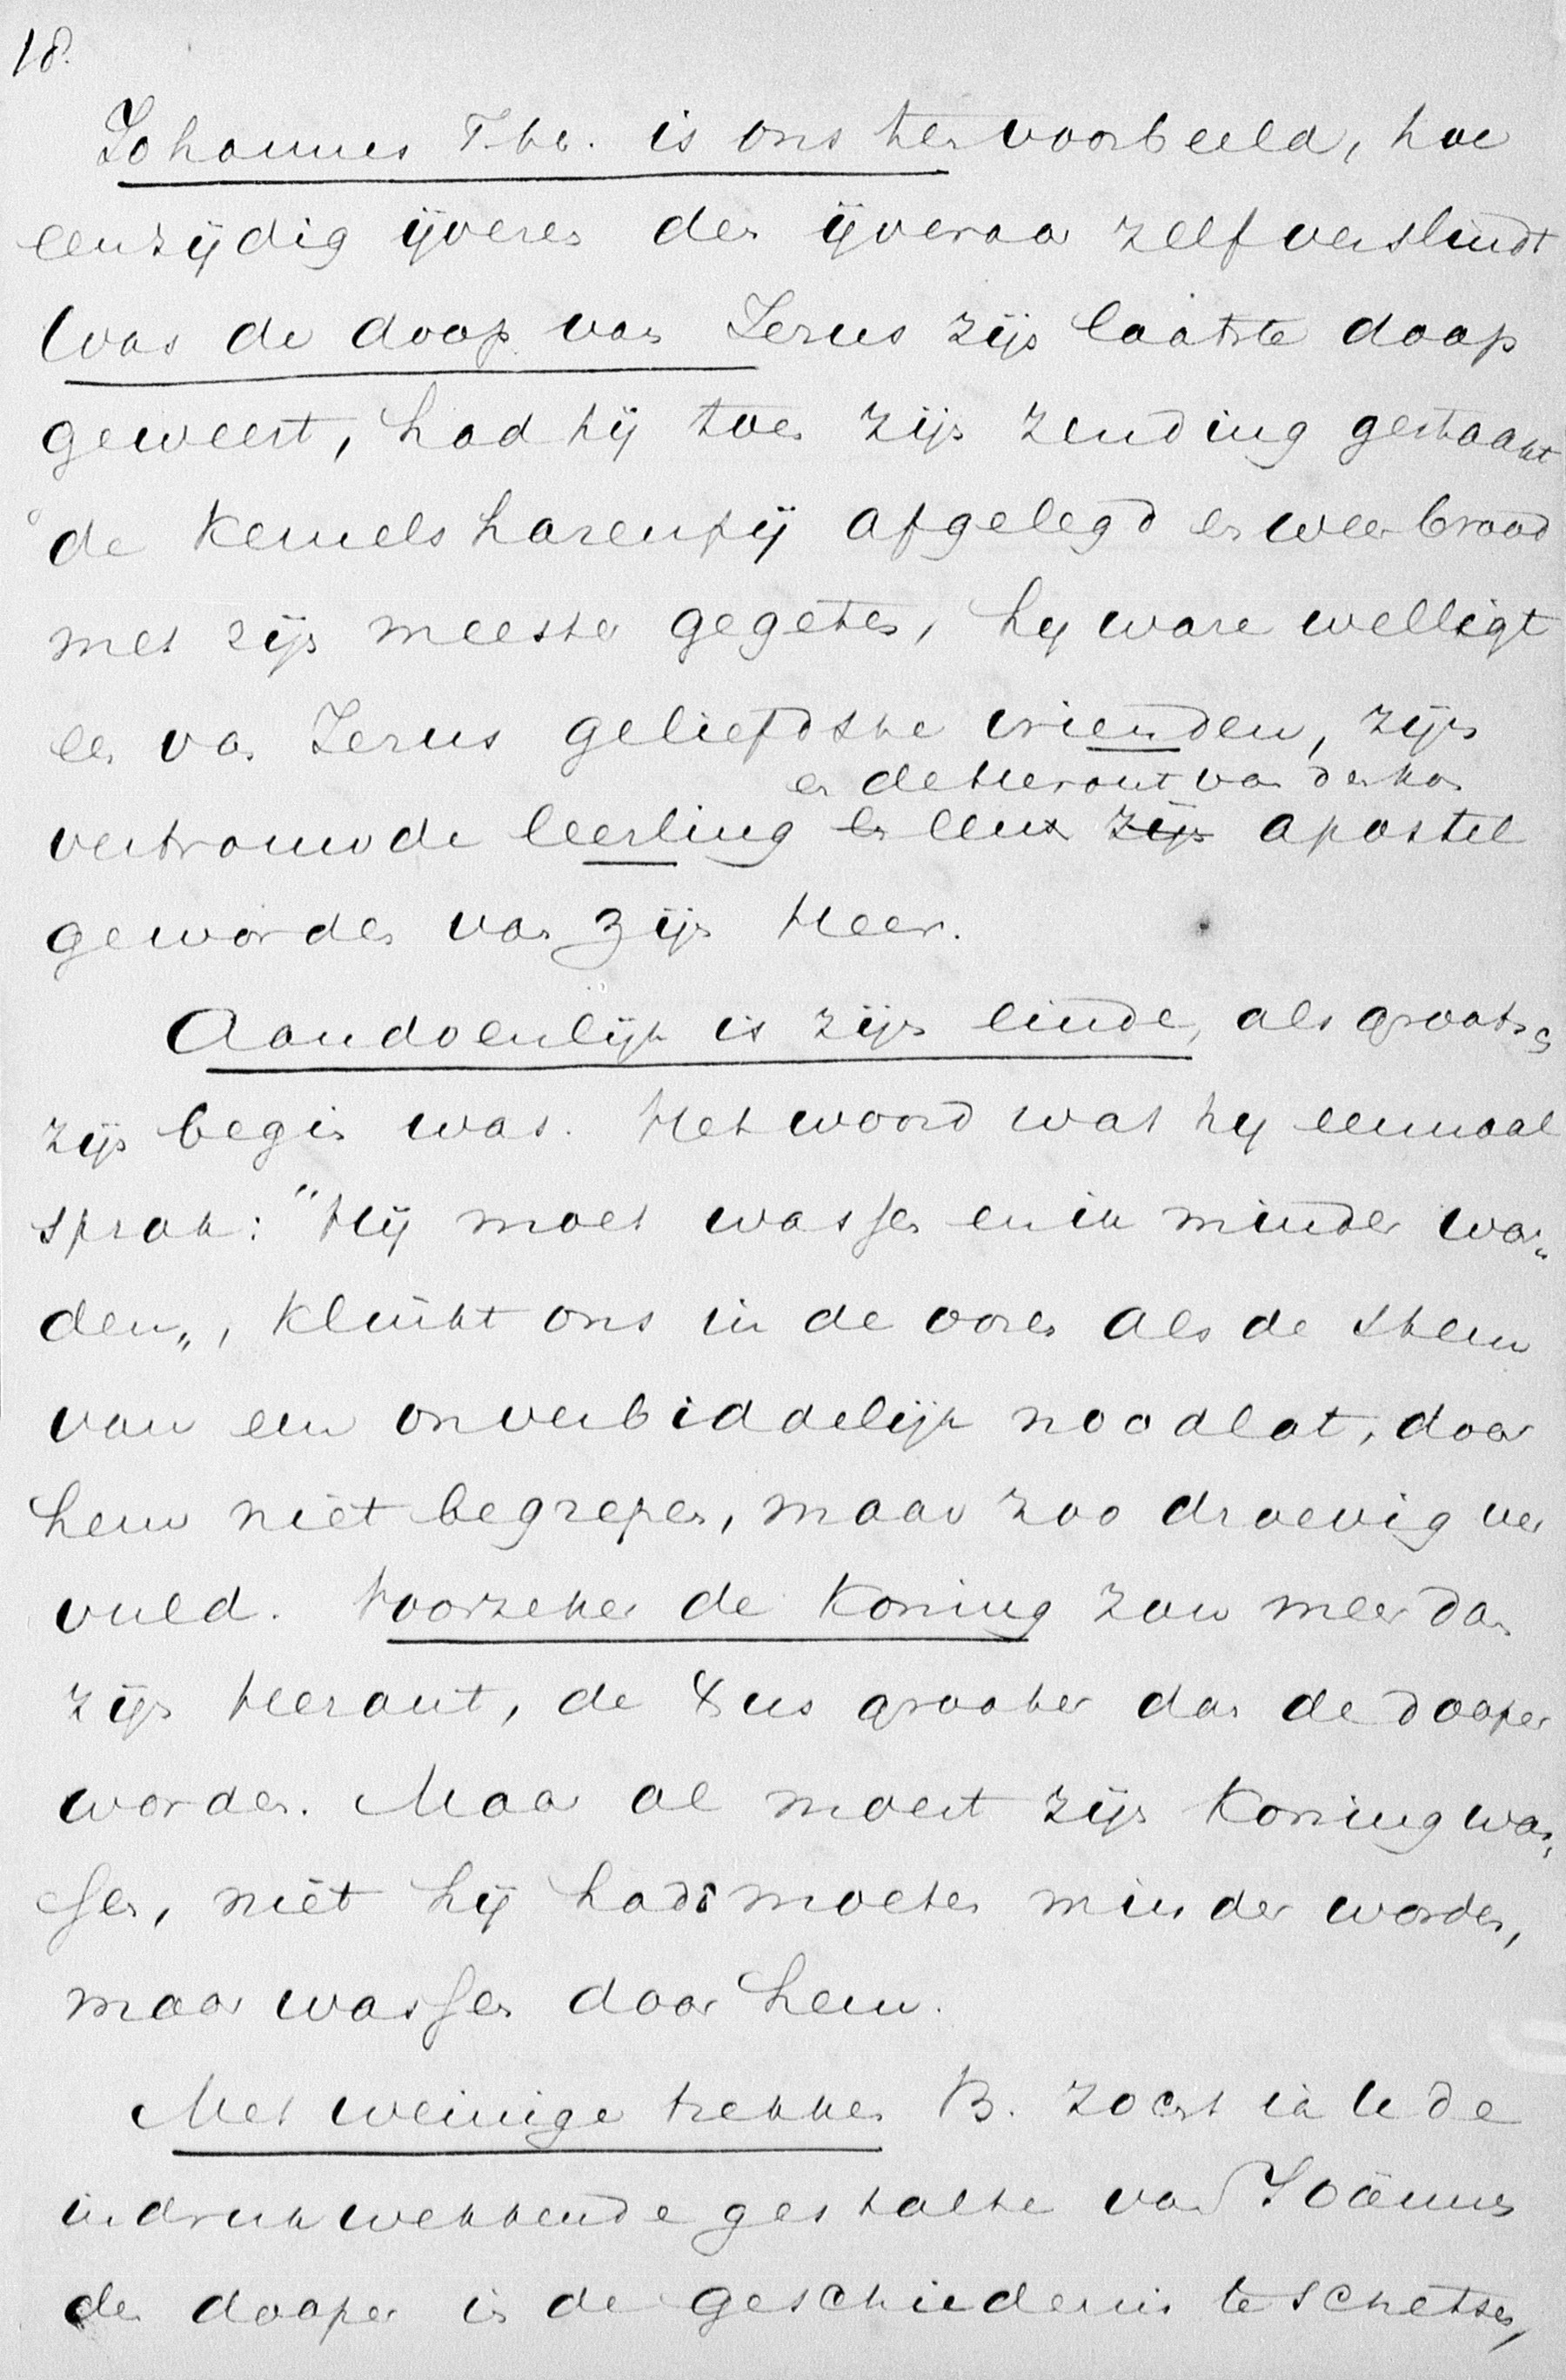 18.
Johannes T.b.b. is ons ten voorbeeld, hoe
eenzijdig ijveren den ijveraar zelf verslindt
Was de doop van Jezus zijn laatste doop
geweest, had hij toen zijn zending gestaakt
de kemelsharenpij afgelegd en weer brood
met zijn meester gegeten, hij ware welligt
een van Jezus geliefdste vrienden, zijn
en de Heraut van den kon
vertrouwde leerling en een zijn apostel
geworden van zijn Heer.
Aandoenlijk is zijn einde, als grootsch
zijn begin was. Het woord wat hij eenmaal
sprak: "Hij moet wassen en ik minder wor„
den„, klinkt ons in de ooren als de stem
van een onverbiddelijk noodlot, door
hem niet begrepen, maar zoo droevig ver
vuld. Voorzeker de Koning zou meer dan
zijn Heraut, de Xus grooter dan de dooper
worden. Maar al moest zijn Koning was„
sen, niet hij had moeten minder worden,
maar wassen door hem.
Met weinige trekken B. zocht ik U de
indrukwekkende gestalte van Joännes
den dooper in de geschiedenis te schetsen,